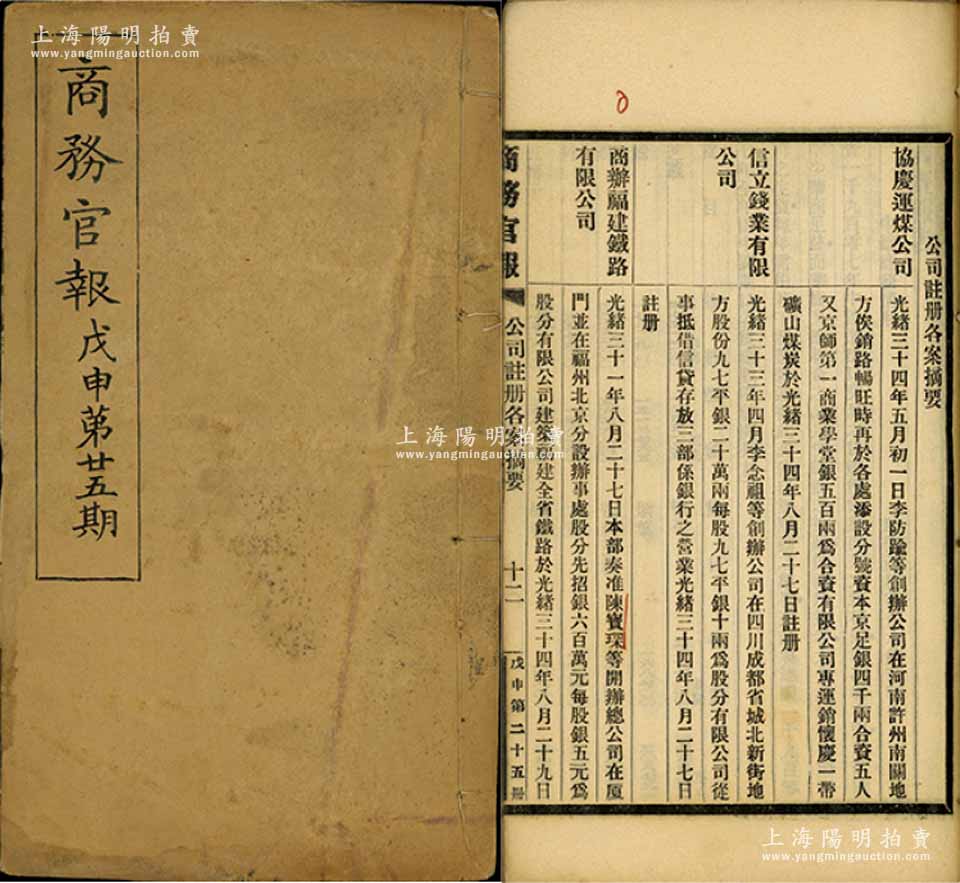 上海陽明拍賣
www.yangmingauction.com
商務官報戊申第廿五期
上海陽明拍賣
www.yangmingauction.com
公司註册各案摘要
協慶運煤公司
光緒三十四年五月初一日李防踰等創辦公司在河南許州南關地
方俟銷路暢旺時再於各處添設分號資本京足銀四千兩合資五人
又京師第一商業學堂銀五百兩爲合資有限公司專運銷懷慶一帶
礦山煤炭於光緒三十四年八月二十七日註册
信立錢業有限
公司
光緒三十三年四月李念祖等創辦公司在四川成都省城北新街地
方股份九七平銀二十萬兩每股九七平銀十兩爲股分有限公司從
事抵借信貸存放三部係銀行之營業光緒三十四年八月二十七日
註册
商辦福建鐵路
有限公司
光緒三十一年八月二十七日本部奏准陳寶琛等開辦總公司在厦
門並在福州北京分設辦事處股分先招銀六百萬元每股銀五元爲
股分有限公司建築福建全省鐵路於光緒三十四年八月二十九日
商務官報
公司註册各案摘要
十二
戊申第二十五册
上海陽明拍賣
www.yangmingauction.com
上海陽明拍賣
www.yangmingauction.com